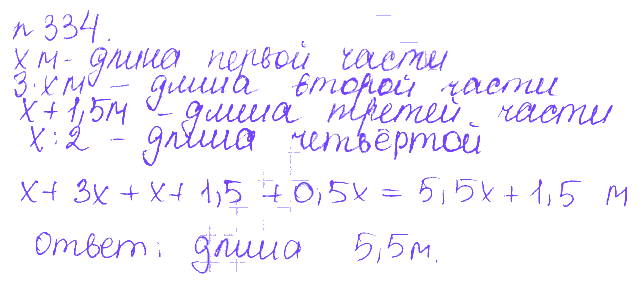 n 334.
x м - длина первой части
3·x м - длина второй части
x + 1,5м - длина третей части
x : 2 - длина четвёртой
x + 3x + x + 1,5 + 0,5x = 5,5x + 1,5 м
Ответ: длина 5,5м.